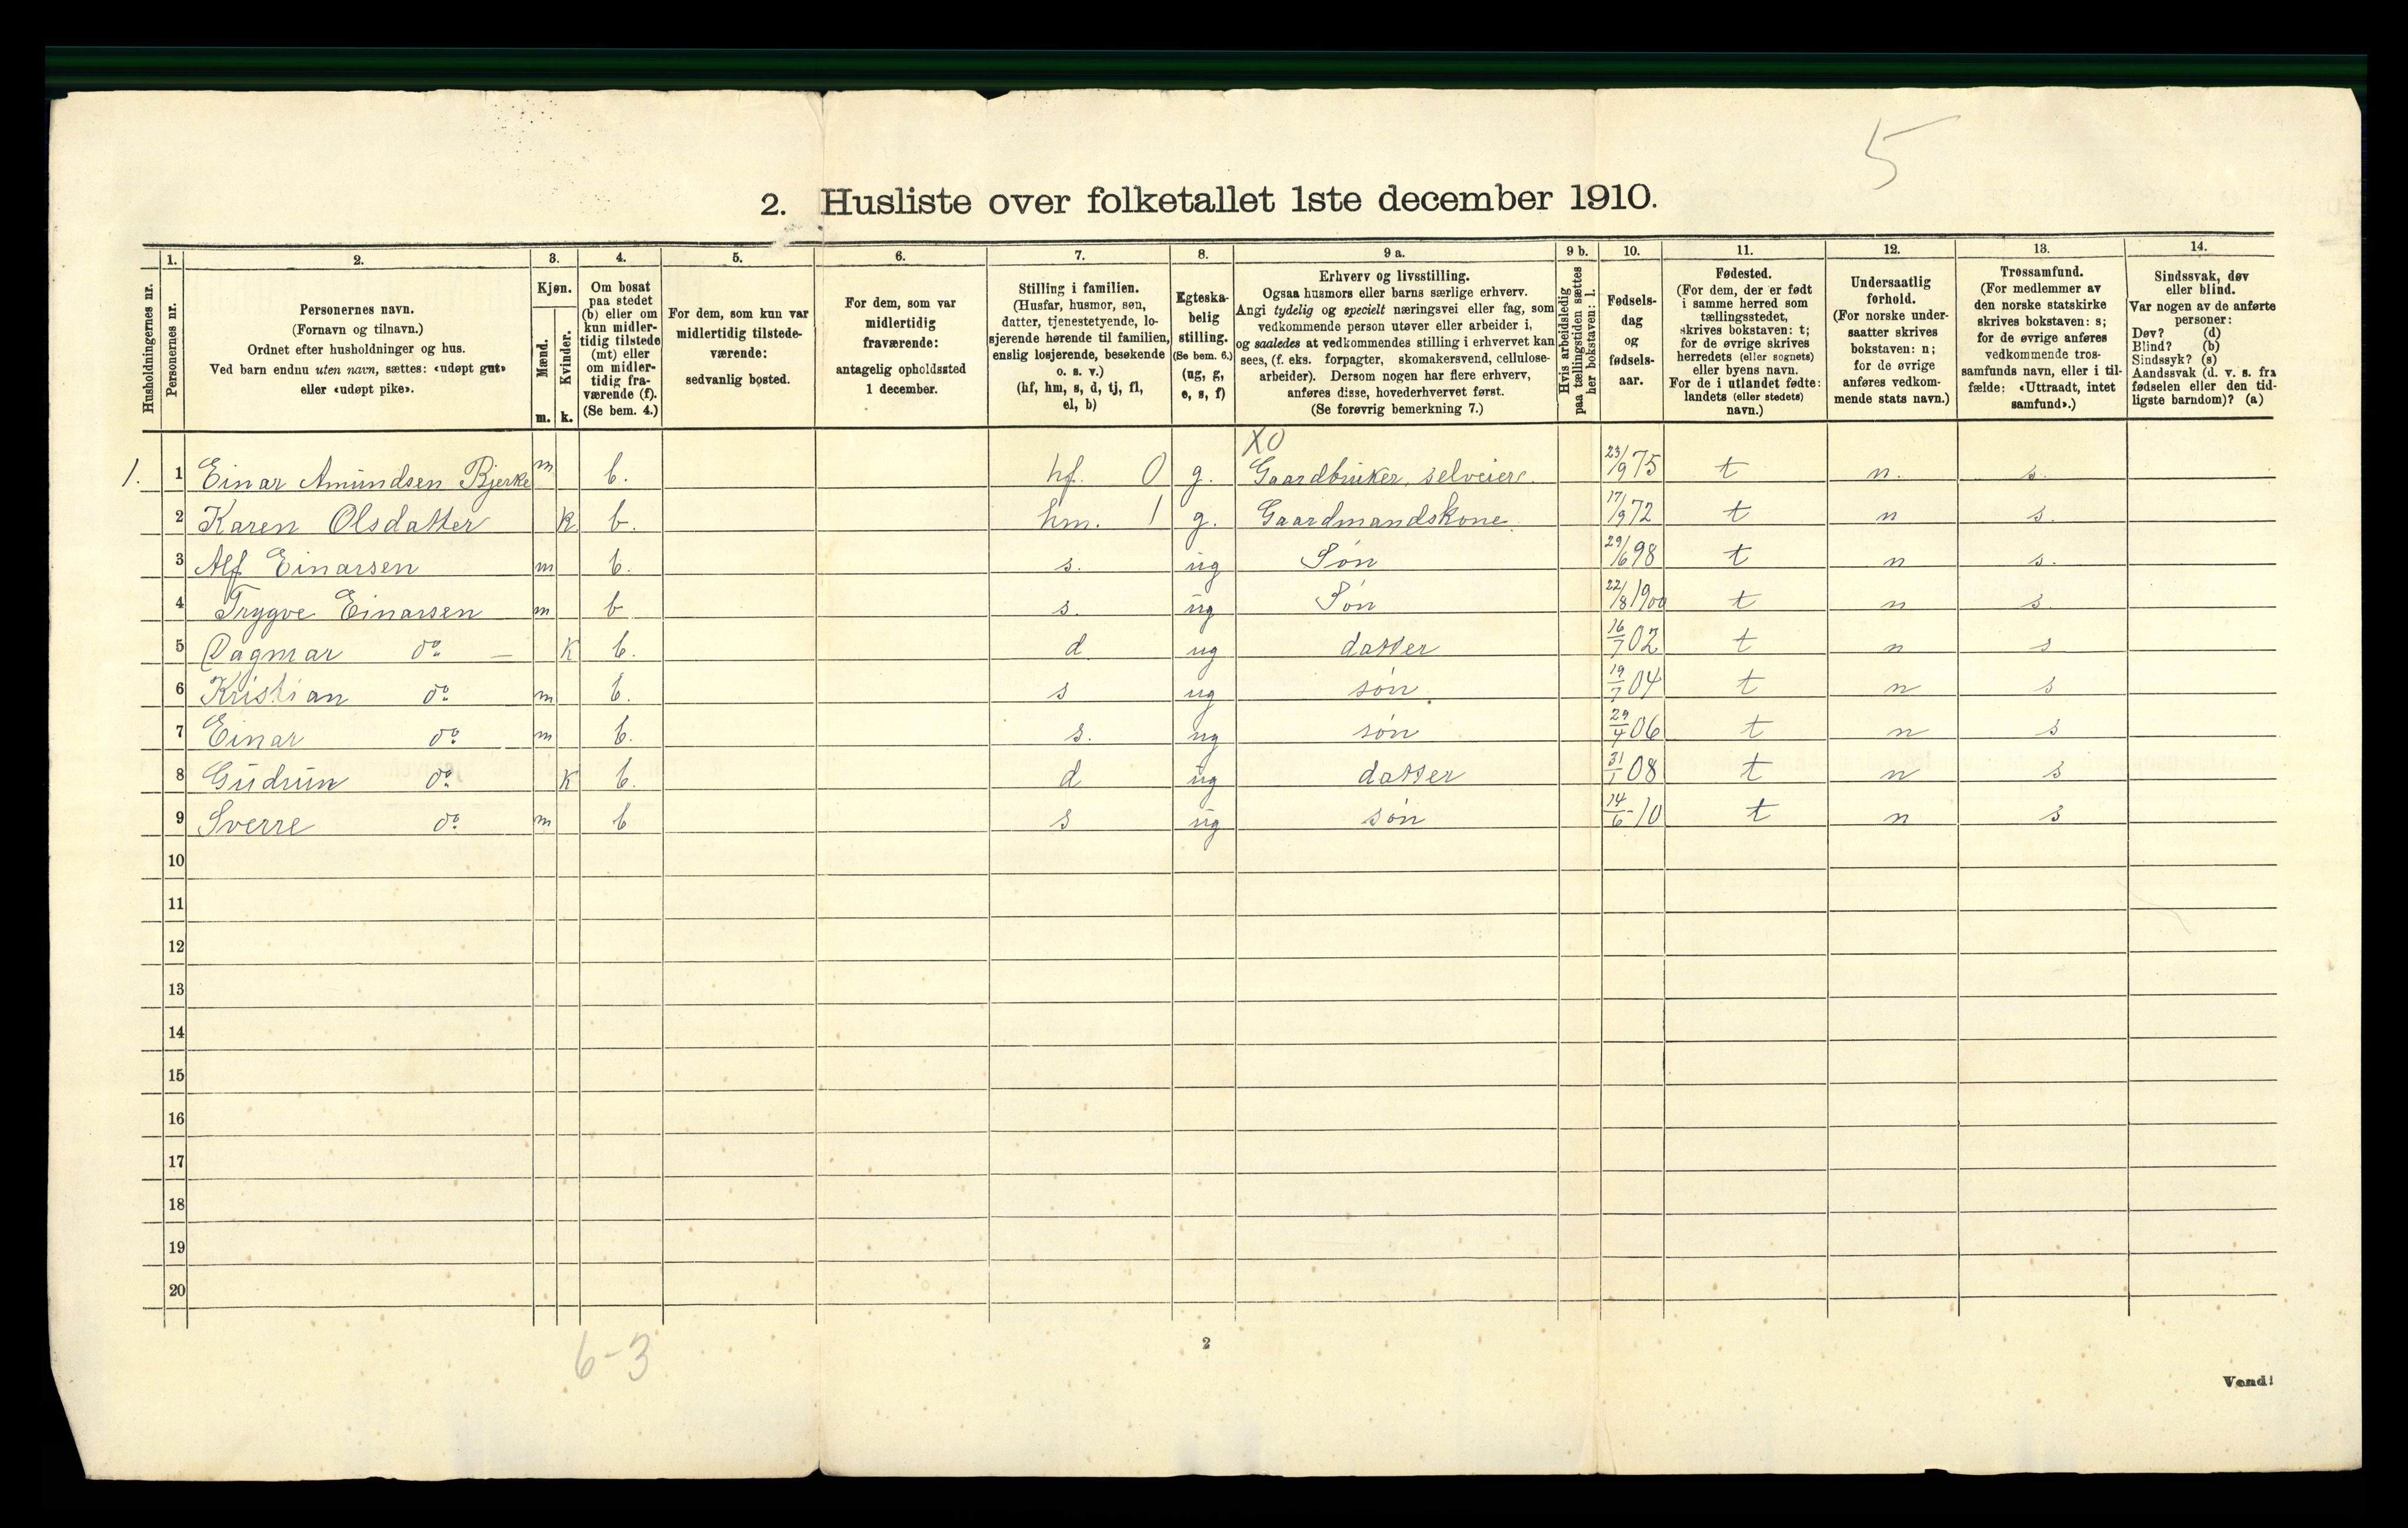 5
2. Husliste over folketallet 1ste december 1910.
Husholdningernes nr.
1.
Personernes nr.
2.
Personernes navn.
(Fornavn og tilnavn.)
Ordnet efter husholdninger og hus.
Ved barn endnu uten navn, sættes: «udøpt gut»
eller «udøpt pike».
3.
Kjøn.
Mænd.
m.
Kvinder.
k.
4.
Om bosat
paa stedet
(b) eller om
kun midler-
tidig tilstede
(mt) eller
om midler-
tidig fra-
værende (f).
(Se bem. 4.)
5.
For dem, som kun var
midlertidig tilstede-
værende:
sedvanlig bosted.
6.
For dem, som var
midlertidig
fraværende:
antagelig opholdssted
1 december.
7.
Stilling i familien.
(Husfar, husmor, søn,
datter, tjenestetyende, lo-
sjerende hørende til familien,
enslig losjerende, besøkende
o. s. v.)
(hf, hm, s, d, tj, fl,
el, b)
8.
Egteska-
belig
stilling.
(Se bem. 6.)
(ug, g,
e, s, f)
9 a.
Erhverv og livsstilling.
Ogsaa husmors eller barns særlige erhverv.
Angi tydelig og specielt næringsvei eller fag, som
vedkommende person utøver eller arbeider i,
og saaledes at vedkommendes stilling i erhvervet kan
sees, (f. eks. forpagter, skomakersvend, cellulose-
arbeider). Dersom nogen har flere erhverv,
anføres disse, hovederhvervet først.
(Se forøvrig bemerkning 7.)
9 b.
Hvis arbeidsledig
paa tællingstiden sættes
her bokstaven: l.
10.
Fødsels-
dag
og
fødsels-
aar.
11.
Fødested.
(For dem, der er født
i samme herred som
tællingsstedet,
skrives bokstaven: t;
for de øvrige skrives
herredets (eller sognets)
eller byens navn.
For de i utlandet fødte:
landets (eller stedets)
navn.)
12.
Undersaatlig
forhold.
(For norske under-
saatter skrives
bokstaven: n;
for de øvrige
anføres vedkom-
mende stats navn.)
13.
Trossamfund.
(For medlemmer av
den norske statskirke
skrives bokstaven: s;
for de øvrige anføres
vedkommende tros-
samfunds navn, eller i til-
fælde: «Uttraadt, intet
samfund».)
14.
Sindssvak, døv
eller blind.
Var nogen av de anførte
personer:
Døv? (d)
Blind? (b)
Sindssyk? (s)
Aandssvak (d. v. s. fra
fødselen eller den tid-
ligste barndom)? (a)
X0
1. 1 Einar Amundsen Bjerke m b. hf. 0 g. Gaardbruker, selveier. 23/9 75 t n. s.
2 Karen Olsdatter k b. hm. 1 g. Gaardmandskone. 17/9 72 t n s.
3 Alf Einarsen m b. s. ug Søn 29/6 98 t n s.
4 Trygve Einarsen m b s. ug Søn 22/8 1900 t n s.
5 Dagmar do — k b. d. ug datter 16/7 02 t n s
6 Kristian do m b. s ug søn. 19/7 04 t n s
7 Einar do m b. s. ug søn 29/4 06 t n s
8 Gudrun do k b. d ug datter 31/1 08 t n s
9 Sverre do m b s ug søn 14/6 10 t n s
10
11
12
13
14
15
16
17
18
19
20
6-3
2
Vend!